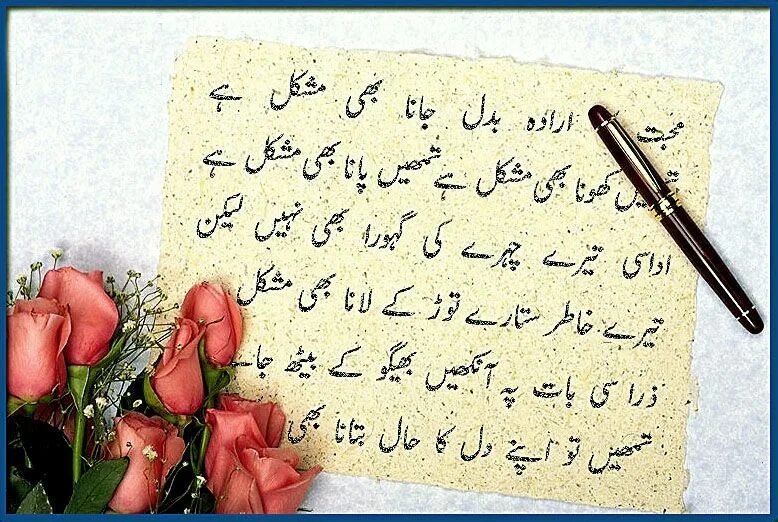 محبت ارادہ بدل جانا بھی مشکل ہے
کھونا بھی مشکل ہے تمھیں پانا بھی مشکل ہے
اداسی تیرے چہرے کی گہورا بھی نہیں لیکن
تیرے خاطر ستارے توڑ کے لانا بھی مشکل
ذرا سی بات پہ آنکھیں بھیگو کے بیٹھ جا
تمھیں تو اپنے دل کا حال بتانا بھی